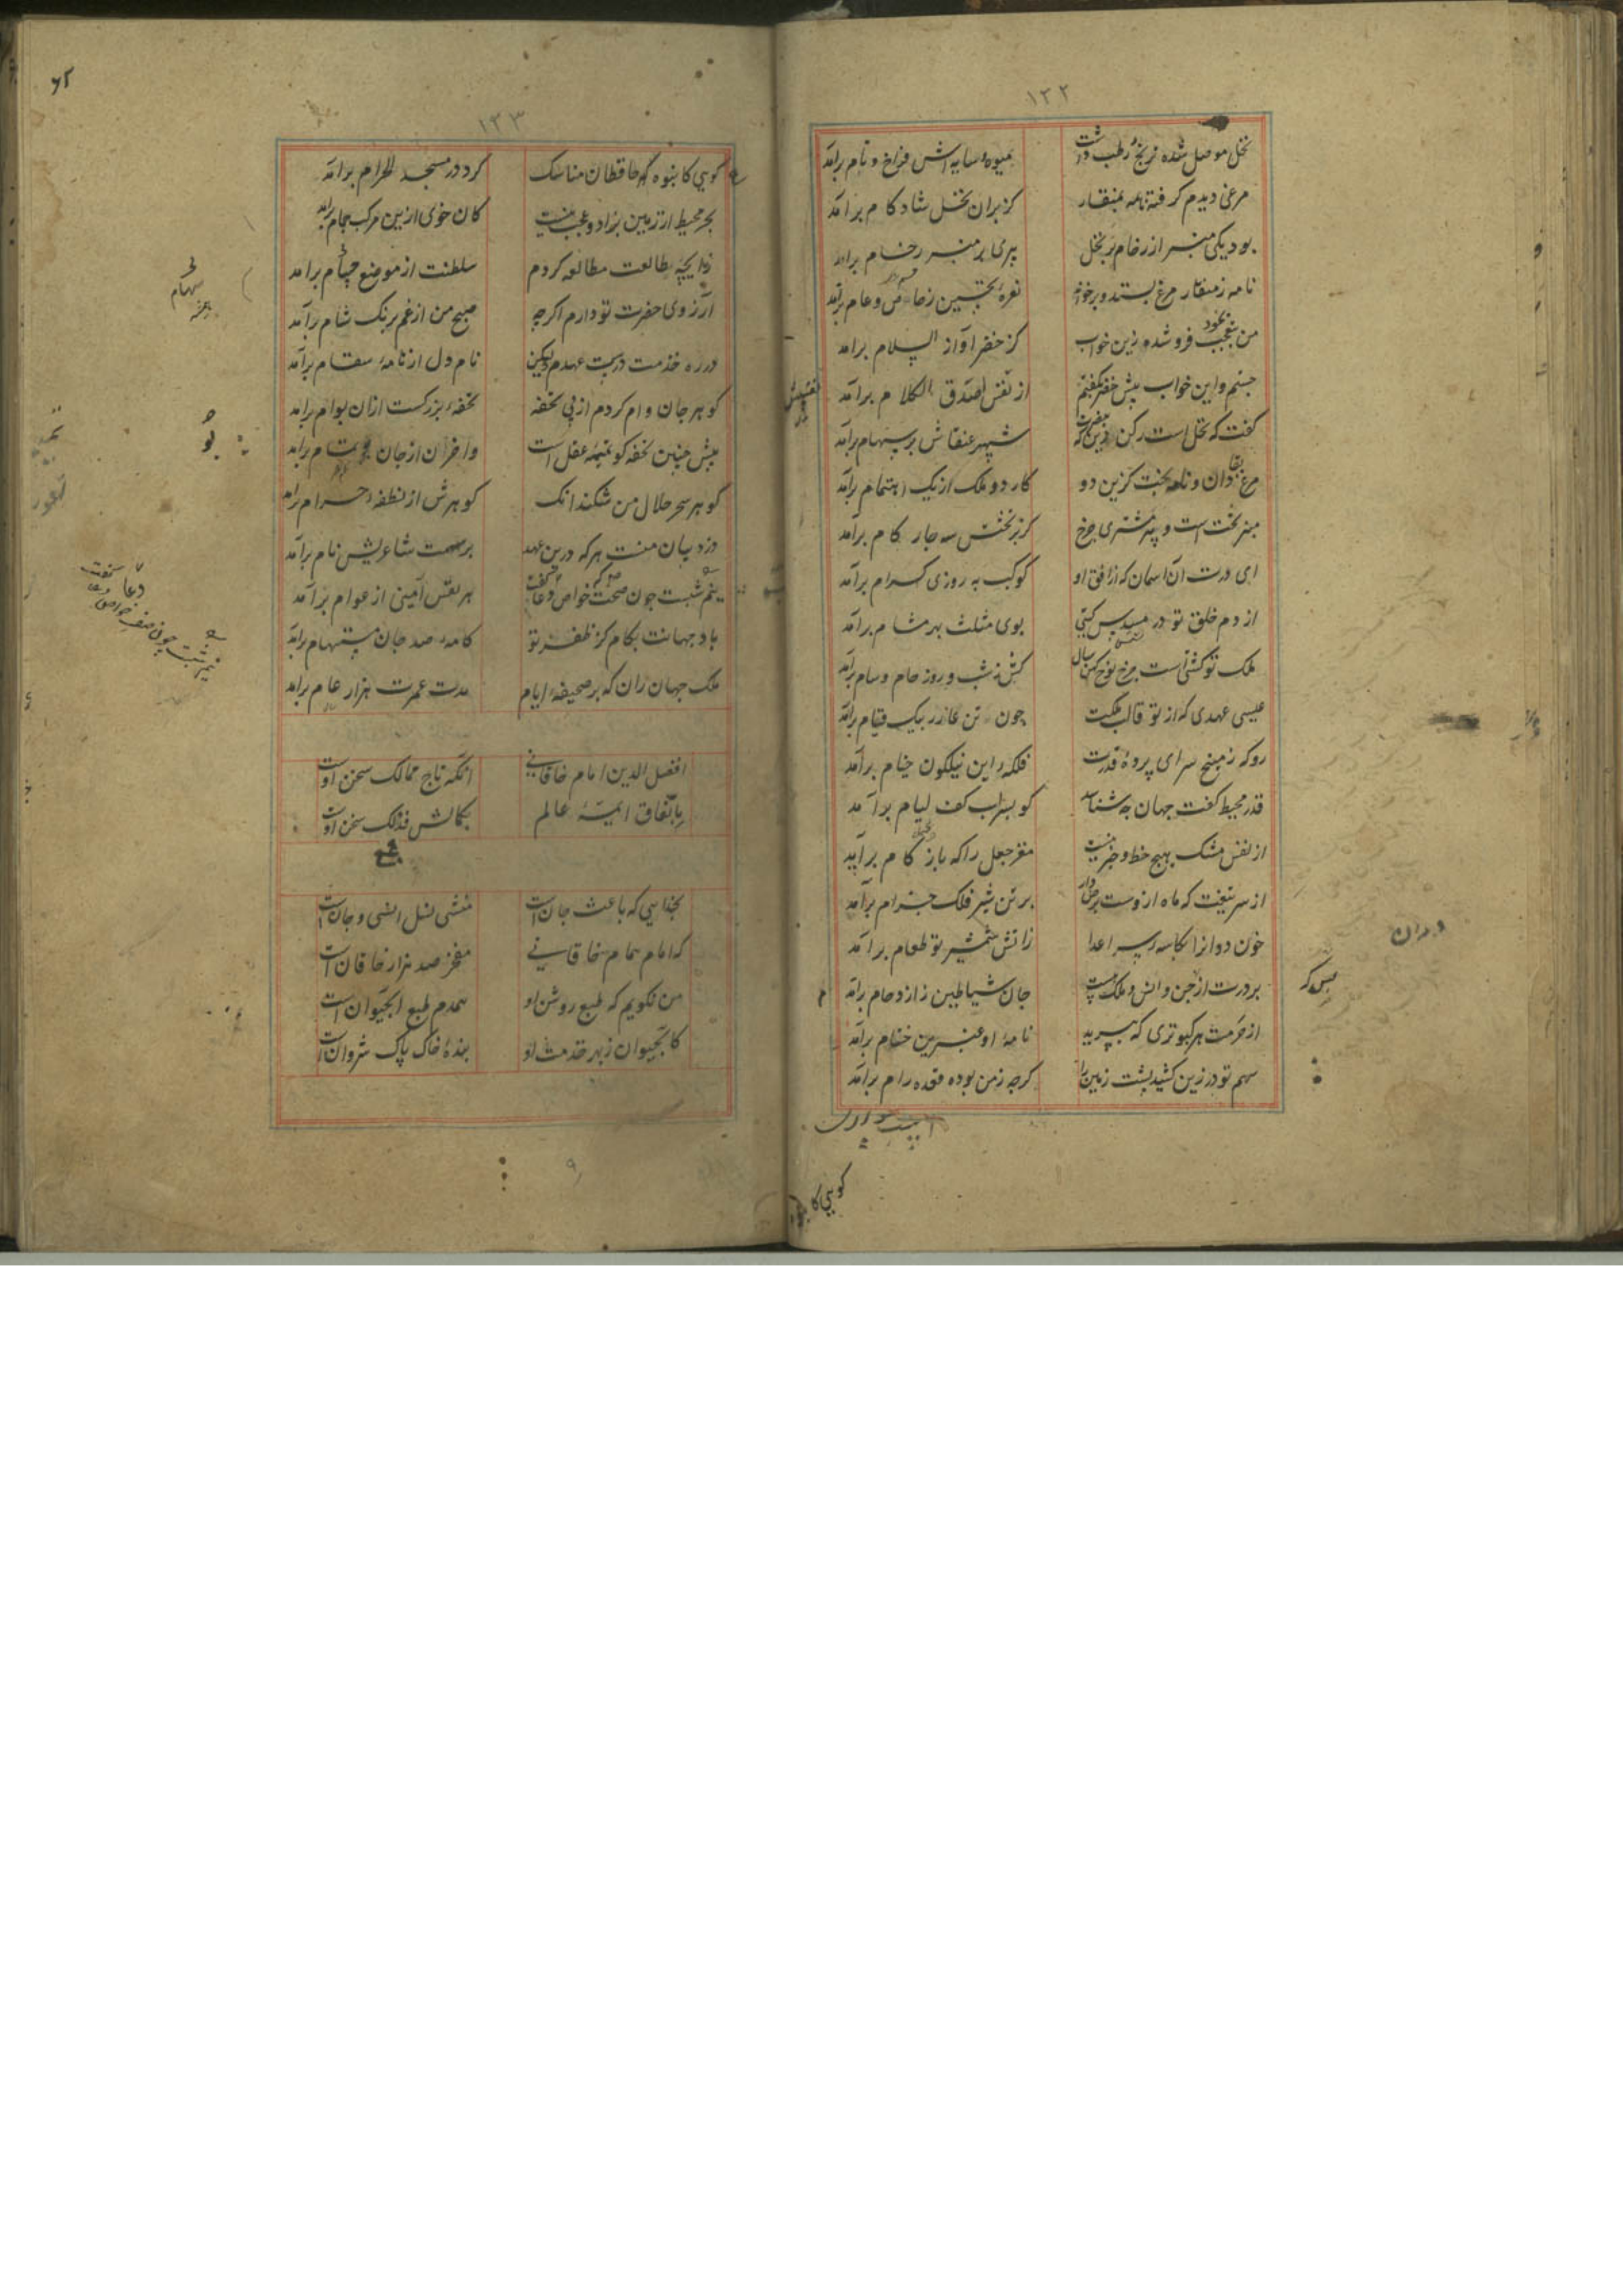 ۱۲۲
نخل موصل شده ترنج و رطب داشت
میوه و سایه اش فراخ و تام برآمد
مرغی دیدم گرفته نامه بمنقار
کز بر آن نخل شادکام برآمد
بود یکی منبر از رخام بر نخل
پیری بر منبر رخام برآمد
نامه ز منقار مرغ بستد و برخواند
نعره تحسین ز خاص و عام برآمد
من بتعجب بخود فرو شده زین خواب
کز خضر آواز السلام برآمد
جستم و این خواب پیش خضر بگفتم
از نفس اصدق الکلام برآمد
گفت که نخل است رکن دین که
شهپر عنقاش بر سهام برآمد
مرغ بقا دان و نامه بخت کزین دو
کار دو ملک از یک اهتمام برآمد
منبر تخت است و پیر مشتری چرخ
کز بر تختش سه چار گام برآمد
ای درت آن آسمان که از افق او
کوکب بهروزی کرام برآمد
از دم خلق تو در مسدس گیتی
بوی مثلث بهر مشام برآمد
ملک تو کشتی است چرخ نوح کهن سال
کش ز شب و روز حام و سام برآمد
عیسی عهدی که از تو قالب ملکت
چون تن عازر بیک قیام برآمد
رو که ز میخ سرای پرده قدرت
فلکه این نیلگون خیام برآمد
قدر محیط کفت جهان چه شناسد
کو بسراب کف لیام برآمد
از نفس مشک هیچ حظ و خبر نیست
مغز جعل را که با زکام برآمد
از سر تیغت که ماه ازوست برص دار
بر تن شیر فلک جذام برآمد
خون دد از کاسه سر اعدا
زآتش شمشیر تو طعام برآمد
بر درت از جن و انس و ملک هست
جان شیاطین ز ازدحام برآمد
از حرمت هر کبوتری که بپرید
نامه او عنبرین ختام برآمد
سهم تو در زین کشید پشت زمین را
گرچه زمن بوده قعده رام برآمد
دران
بس که
گویی کا
۱۲۳
گویی کانبوه حافظان مناسک
گرد در مسجد الحرام برآمد
بحر محیط از زمین بزاد و عجب نیست
کان خوی ازین مرکب جمام برآمد
زایچه طالعت مطالعه کردم
سلطنت از موضع سهام برآمد
آرزوی حضرت تو دارم اگرچه
صبح من از غم برنگ شام برآمد
در ره خدمت درست عهدم ولیکن
نام دل از نامه سقام برآمد
گوهر جان وام کردم از پی تحفه
تحفه بزرگست از آن بوام برآمد
پیش چنین تحفه کو تمیمه عقل است
واحزن از جان برآمد
گوهر سحر حلال من شکند آنک
گوهرش از نطفه حرام برآمد
دزد بیان منست هر که درین عهد
بر سمت شاعریش نام برآمد
نیم شبت چون صف خواص دعا گفت
هر نفس آمینی از عوام برآمد
باد جهانت بکام کز ظفر تو
کامه صد جان مستهام برآمد
ملک جهان ران که بر صحیفه ایام
مدت عمرت هزار عام برآمد
افضل الدین امام خاقانی
آنکه تاج ممالک سخن اوست
باتفاق ایمه عالم
بکمالش فذلک سخن اوست
بخدایی که باعث جان است
منشی نسل انسی و جان است
که امام همام خاقانی
مفخر صد هزار خاقان است
من نگویم که طبع روشن او
همدم طبع آبحیوان است
کابحیوان ز بهر خدمت او
بنده خاک پاک شروان است
سهام